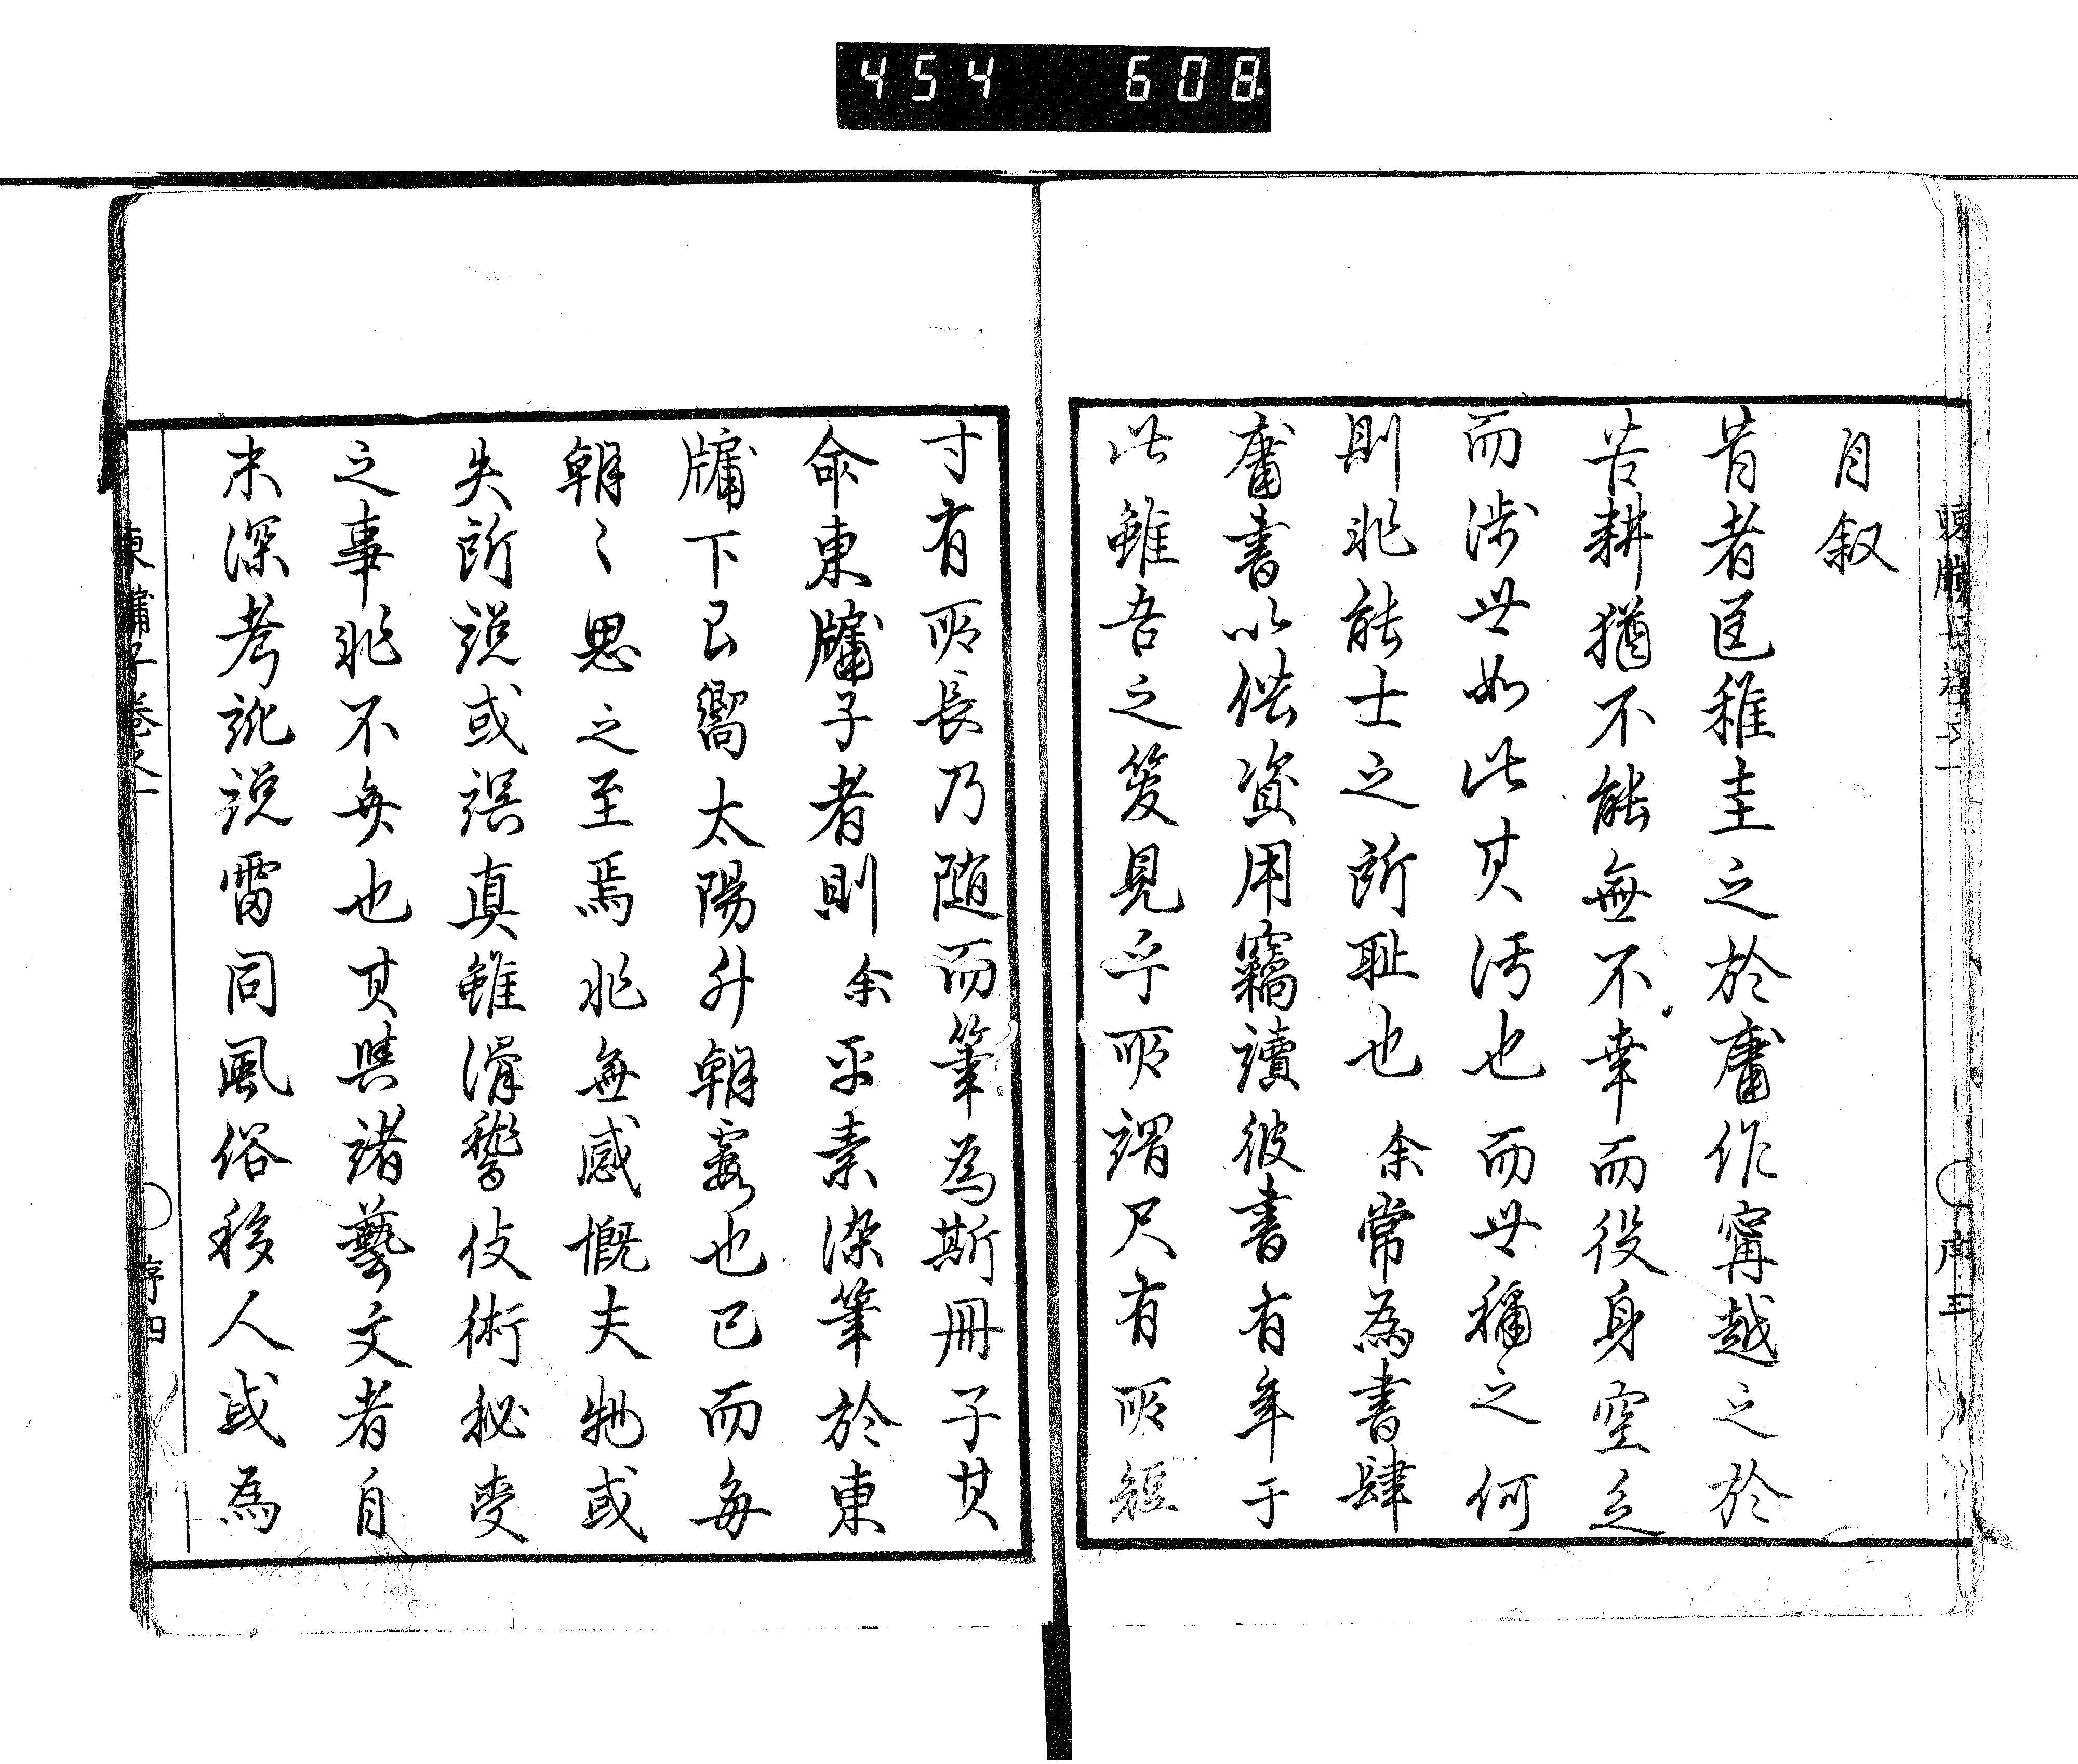 454 608
自叙
昔者匡稚圭之於庸作甯越之於
苦耕猶不能無不幸而役身空乏
而渉世如此其汚也而世稱之何
則非能士之所耻也余常為書肆
庸書以供資用竊讀彼書有年于
此雖吾之管見乎所謂尺有所短
寸有所長乃随而筆為斯冊子其
命東牖子者則余平素染筆於東
牖下已嚮太陽升朝霞也已而毎
朝〻思之至焉非無感慨夫物或
失所説或誤真雖滑稽伎術秘変
之事非不無也其與諸藝文者自
未深考訛説雷同風俗移人或為
東牖子卷之一
序四